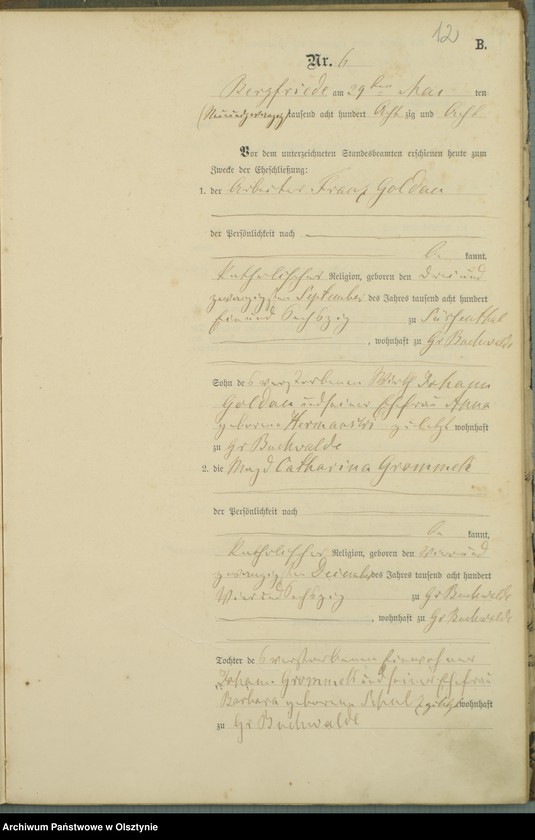 12
B.
Nr. 6
Bergfriede am 29 ten Mai ten
(Neunundzwanzig) tausend acht hundert Acht zig und Acht
Vor dem unterzeichneten Standesbeamten erschienen heute zum
Zwecke der Eheschließung:
1. der Arbeiter Franz Goldau
der Persönlichkeit nach
be kannt,
katholischer Religion, geboren den drei und
zwanzigsten September des Jahres tausend acht hundert
Ein und Sechszig zu
, wohnhaft zu Gr Buchwalde
Sohn des verstorbenen Wirth Johann
Goldau und seiner Ehefrau Anna
geborene zuletzt wohnhaft
zu Gr Buchwalde
2. die Magd Catharina Grommek
der Persönlichkeit nach
be kannt,
katholischer Religion, geboren den vier und
zwanzigsten Dezember des Jahres tausend acht hundert
Vier und Sechszig zu Gr Buchwalde
, wohnhaft zu Gr Buchwalde
Tochter des verstorbenen Einwohner
Johann Grommek und seiner Ehefrau
Barbara geborene zuletzt wohnhaft
zu Gr Buchwalde
Archiwum Państwowe w Olsztynie